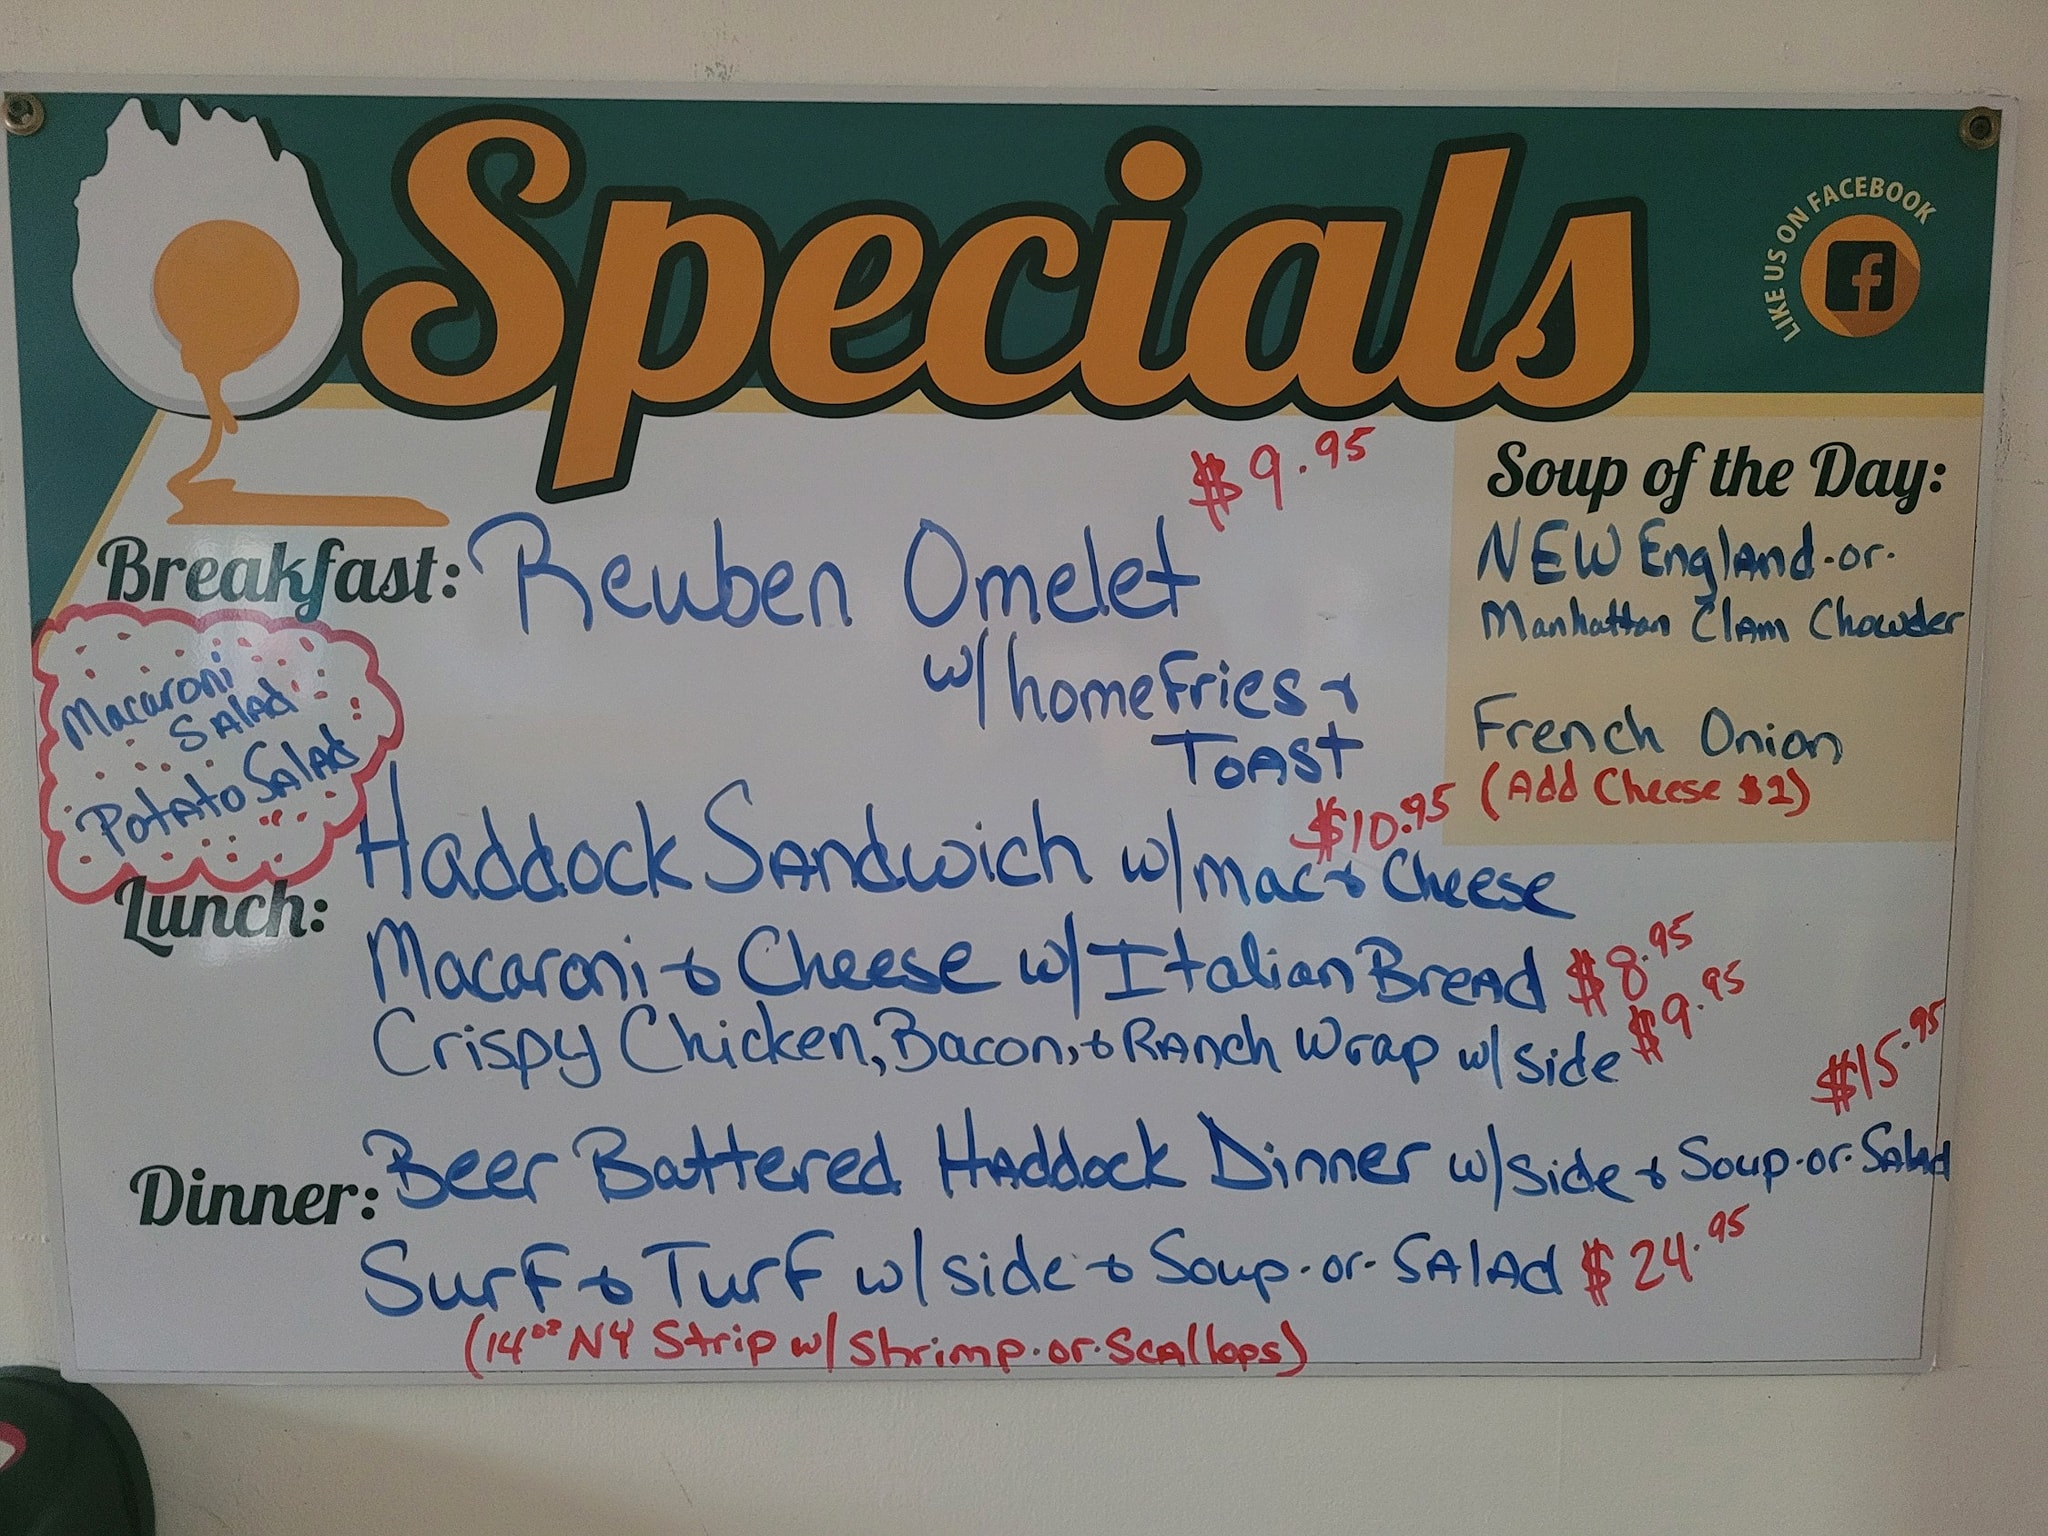 Specials
LIKE US ON FACEBOOK
f
Soup of the Day:
NEW England-or-
Manhattan Clam Chowder
French Onion
(Add Cheese $1)
Breakfast: Reuben Omelet $9.95
w/ homefries &
Toast
Macaroni
Salad
Potato Salad
Lunch: Haddock Sandwich w/ Mac & Cheese $10.95
Macaroni & Cheese w/ Italian Bread $8.95
Crispy Chicken, Bacon, & Ranch Wrap w/ side $9.95
Dinner: Beer Battered Haddock Dinner w/ side & Soup-or-Salad $15.95
Surf & Turf w/ side & Soup-or-Salad $24.95
(14oz NY Strip w/ Shrimp-or-Scallops)